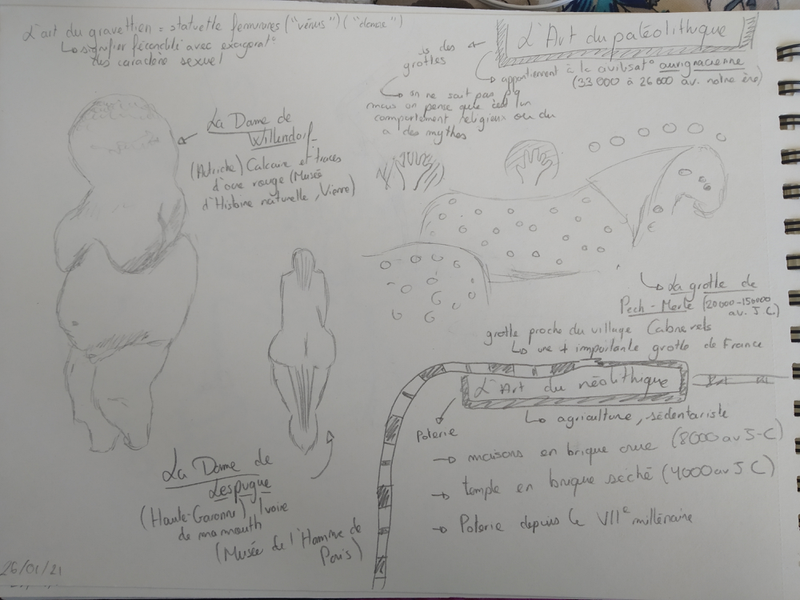 L'art du gravettien = statuette féminines ("vénus") ("danse")
↳ signifier fécondité avec exagérat°
des caractère sexuel
L'Art du paléolithique
→ appartiennent à la civilisat° aurignacienne
(33 000 à 26 000 av. notre ère)
des
grottes
→ on ne sait pas pq
mais on pense que
comportement religieux ou du
a des mythes
La Dame de
Willendorf
(Autriche) Calcaire et traces
d'ocre rouge (Musée
d'Histoire naturelle, Vienne)
↳ La grotte de
Pech-Merle (20000-15000
av. J C)
grotte proche du village Cabrerets
↳ une + importante grotte de France
L'Art du néolithique
↳ agriculture, sédentariste
Poterie
→ maisons en brique crue (8000 av J-C)
→ temple en brique séché (4000 av J C)
→ Poterie depuis le VIIe millénaire
La Dame de
Lespugue
(Haute-Garonne), Ivoire
de mammouth
(Musée de l'Homme de
Paris)
26/01/21